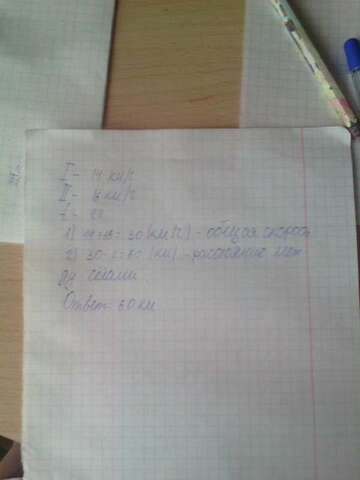 I - 14 км/ч
II - 16 км/ч
t -
1) 14+16= 30 (км/ч) - общая скорос
2) 30·2=60 (км) - расстояние меж
ду селами
Ответ: 60 км